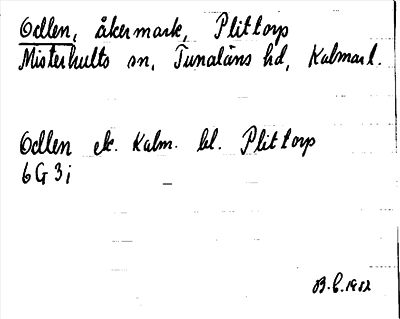 Odlen, åkermark, Plittorp
Misterhults sn, Tunaläns hd, Kalmar l.
Odlen ek. Kalm. bl. Plittorp
6G 3i
B.C. 1982